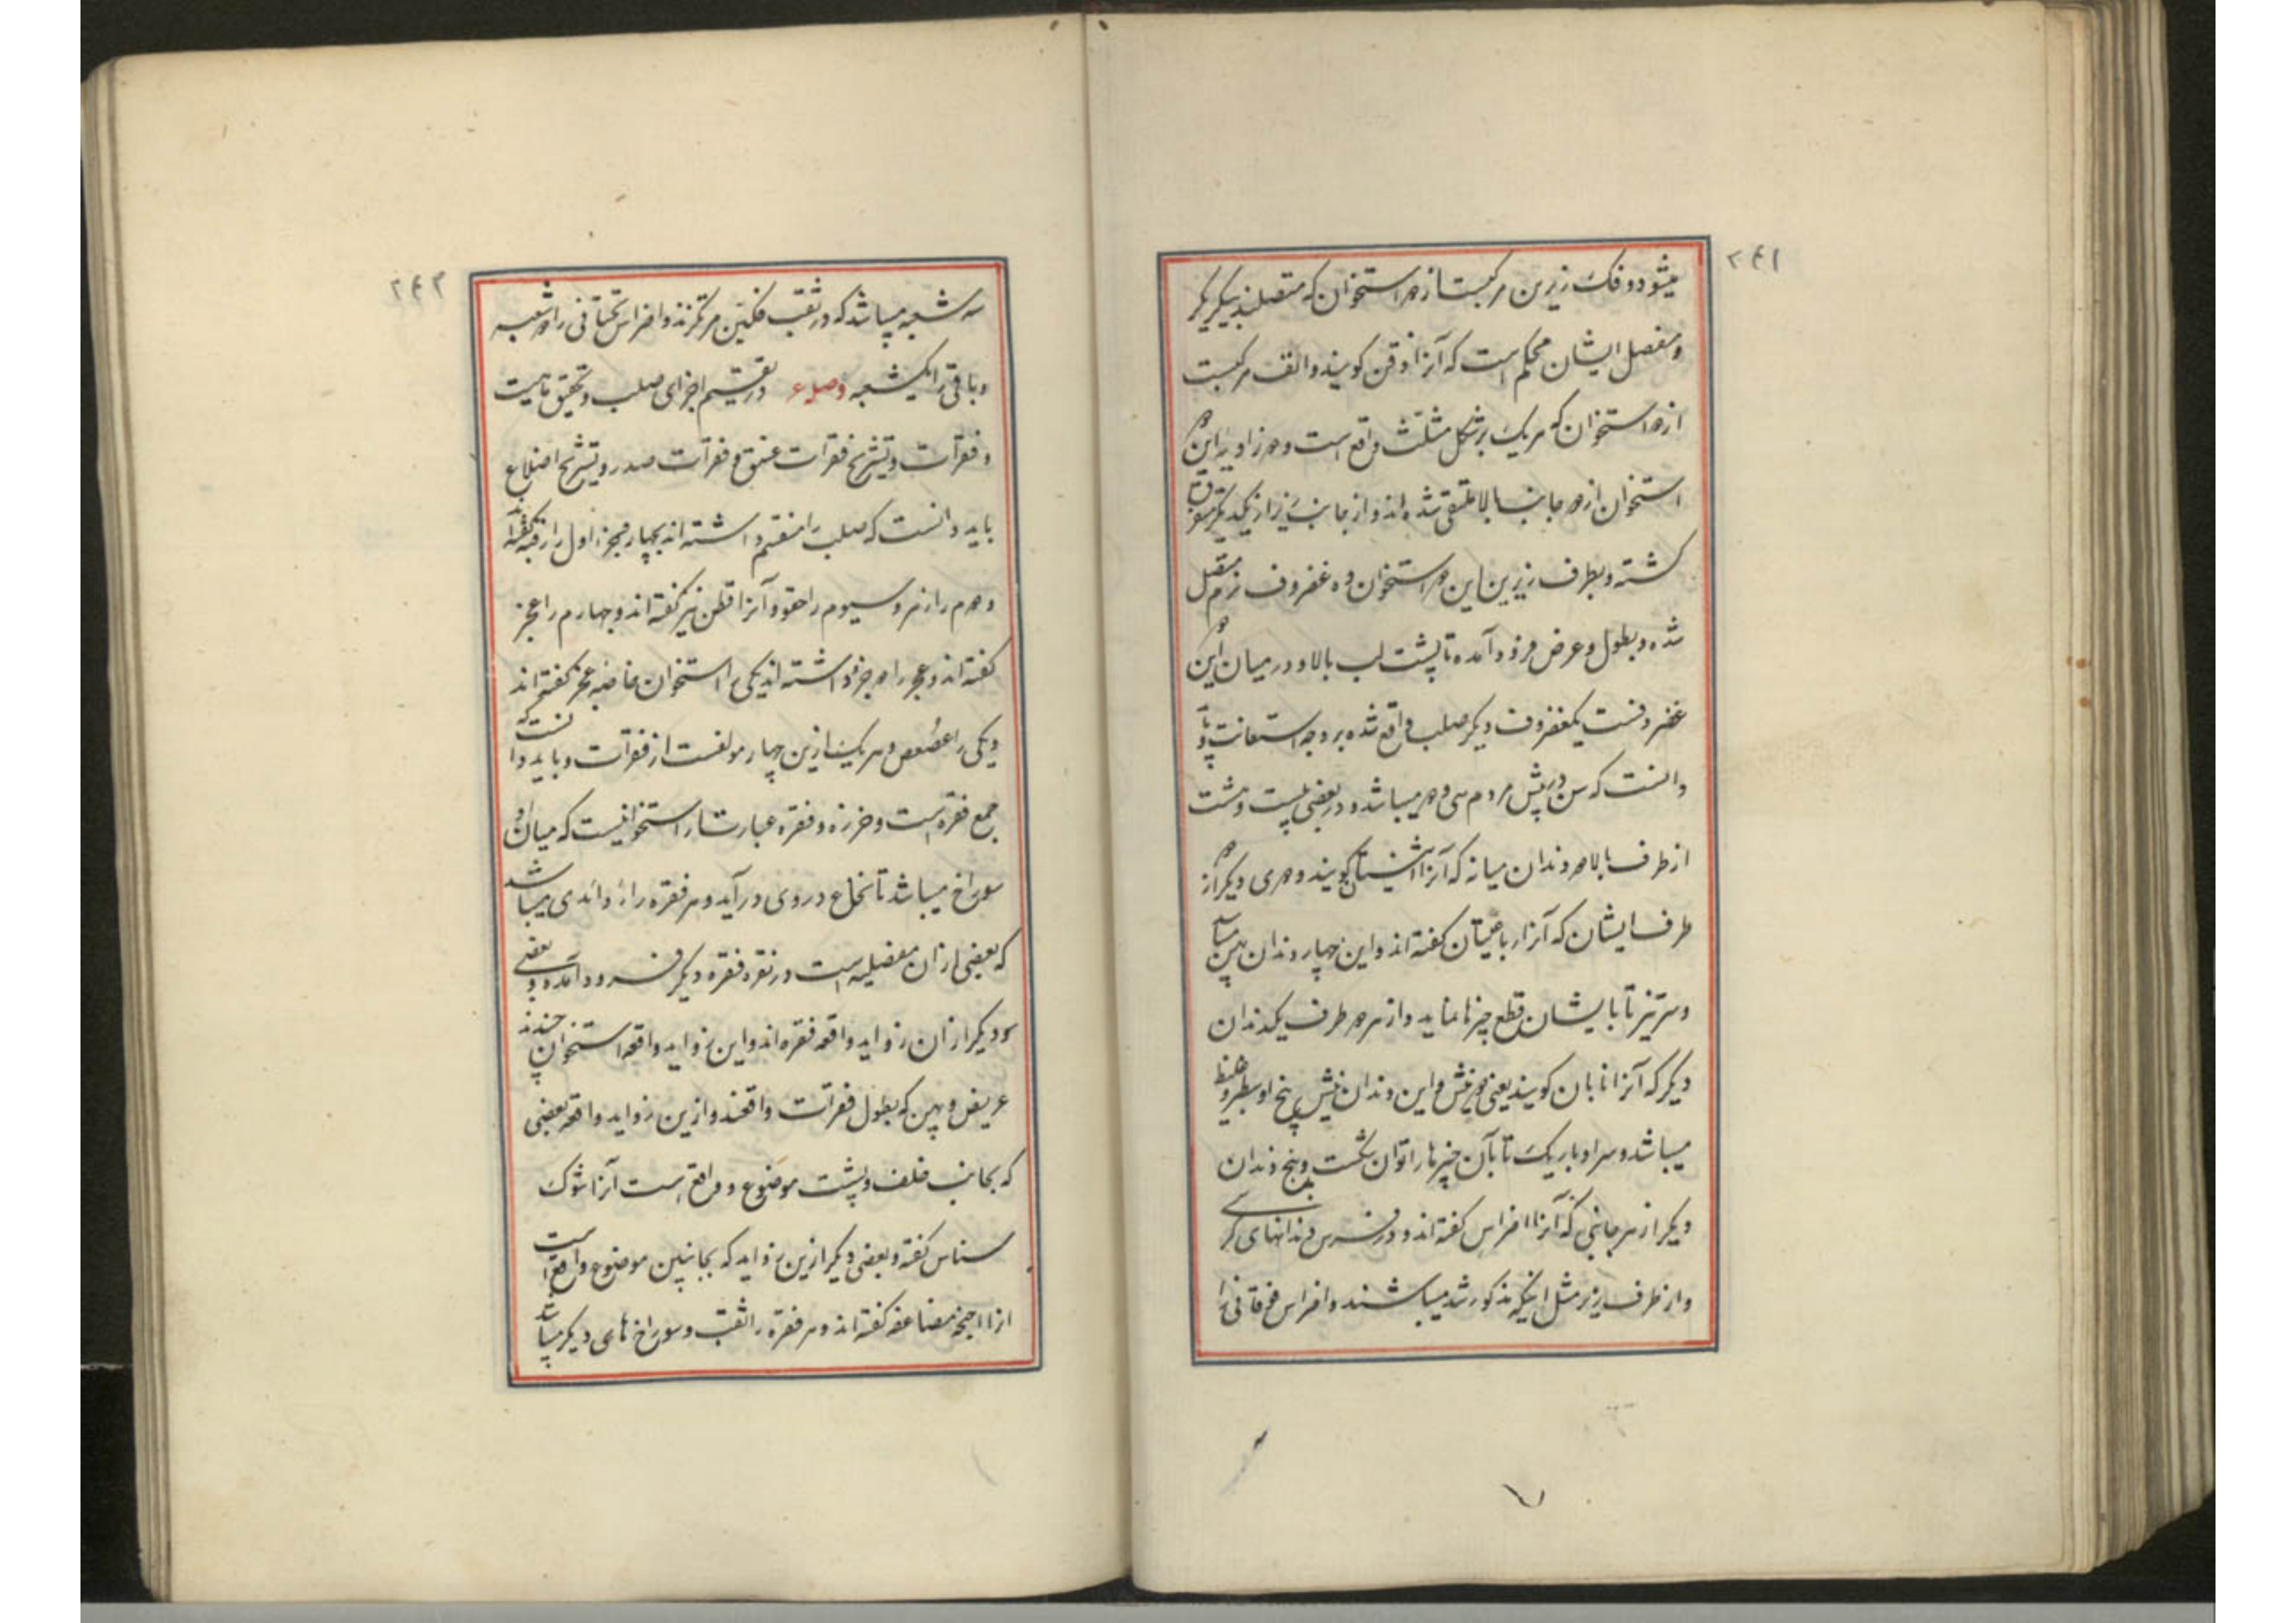 ۲۴۱
میشود و فک زیرین مرکبست از دو استخوان که متصلند بیکدیگر
و مفصل ایشان محکم است که آنرا ذقن گویند و انف مرکبست
از دو استخوان که هر یک بر شکل مثلث واقع است و دو زاویه این دو
استخوان از دو جانب بالا ملتقی شده اند و از جانب زیر از یکدیگر متفرق
گشته و بطرف زیرین این دو استخوان دو غضروف نرم متصل
شده و بطول و عرض فرود آمده تا پشت لب بالا و در میان این دو
غضروفست یک غضروف دیگر صلب واقع شده بر وجه استعانت و باید
دانست که سن در بیش مردم سی و دو میباشد و در بعضی بیست و هشت
از طرف بالا دو دندان میانه که آنرا ثنیتان گویند و دوی دیگر از دو
طرف ایشان که آنرا رباعیتان گفته اند و این چهار دندان پهن میباشد
و سر تیز تا بایشان قطع چیزها نماید و از هر دو طرف یکدندان
دیگر که آنرا نابان گویند یعنی دو نیش و این دندان نیش بیخ او سطبر و غلیظ
میباشد و سر او باریک تا بآن چیزها را توان شکست و پنج دندان
دیگر از هر جانبی که آنرا اضراس گفته اند و در فرس دندانهای کرسی
و از طرف زیر مثل اینکه مذکور شد میباشند و اضراس فوقانی را
۲۴۲
سه شعبه میباشد که در ثقب فکین مرتکزند و اضراس تحتانی را دو شعبه
و باقی را یکشعبه وصل ۶ در تقسیم اجزای صلب و تحقیق ماهیت
فقرات و تشریح فقرات عنق و فقرات صدر و تشریح اضلاع
باید دانست که صلب را منقسم داشته اند بچهار جزء اول را رقبه گفته اند
و دوم را زور و سیوم را حقو و آنرا قطن نیز گفته اند و چهارم را عجز
گفته اند و عجز را دو جزو داشته اند یکی را استخوان خاصه عجز گفته اند
و یکی را عصعص و هر یک ازین چهار مولفست از فقرات و باید دانست که
جمع فقره است و خرزه و فقره عبارت از استخوانیست که میان او
سوراخ میباشد تا نخاع در وی درآید و هر فقره را زوائدی میباشد
که بعضی از آن مفصلیه است در نقره فقره دیگر فرود آمده و بعضی
دیگر از آن زواید واقیه فقره اند و این زواید واقیه استخوان چندند
عریض و پهن که بطول فقرات واقعند و ازین زواید واقیه بعضی
که بجانب خلف و پشت موضوع و واقع است آنرا شوک
سناسن گفته و بعضی دیگر ازین زواید که بجانبین موضوع و واقع است
آنرا اجنحه مضاعفه گفته اند و هر فقره را ثقب و سوراخ های دیگر میباشد